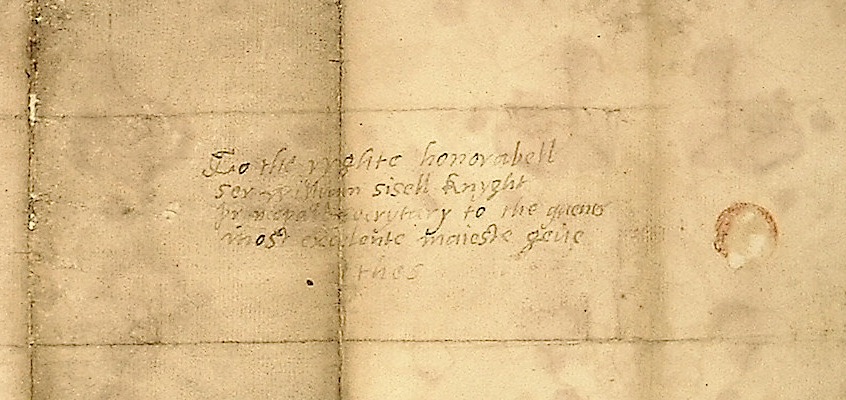 To the ryghte honorabell
ser William sisell knyght
prinsepall secrytary to the quens
most exselente maieste geue
thes